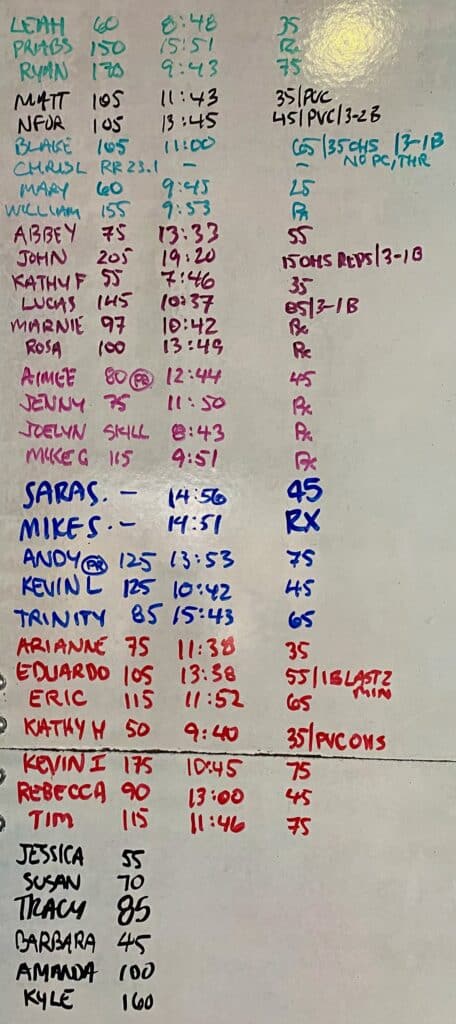 LEAH 60 8:48 35
PRIABS 150 15:51 Rx
RYAN 170 9:43 75
MATT 105 11:43 35/PVC
NFOR 105 13:45 45/PVC/3-2B
BLAKE 165 11:00 65/35OHS/3-1B
NO PC, THR
CHRISL RR23.1 - -
MARY 60 9:45 25
WILLIAM 155 9:53 Rx
ABBEY 75 13:33 55
JOHN 205 19:20 15OHS REPS/3-1B
KATHY F 55 7:46 35
LUCAS 145 10:37 85/3-1B
MARNIE 97 10:42 Rx
ROSA 100 13:49 Rx
AIMEE 80 PR 12:44 45
JENNY 75 11:50 Rx
JOELYN SKILL 8:43 Rx
MIKE G 115 9:51 Rx
SARA S. - 14:56 45
MIKE S. - 14:51 RX
ANDY PR 125 13:53 75
KEVIN L 125 10:42 45
TRINITY 85 15:43 65
ARIANNE 75 11:38 35
EDUARDO 105 13:38 55/1B LAST 2
MIN
ERIC 115 11:52 65
KATHY H 50 9:40 35/PVC OHS
KEVIN I 175 10:45 75
REBECCA 90 13:00 45
TIM 115 11:46 75
JESSICA 55
SUSAN 70
TRACY 85
BARBARA 45
AMANDA 100
KYLE 160